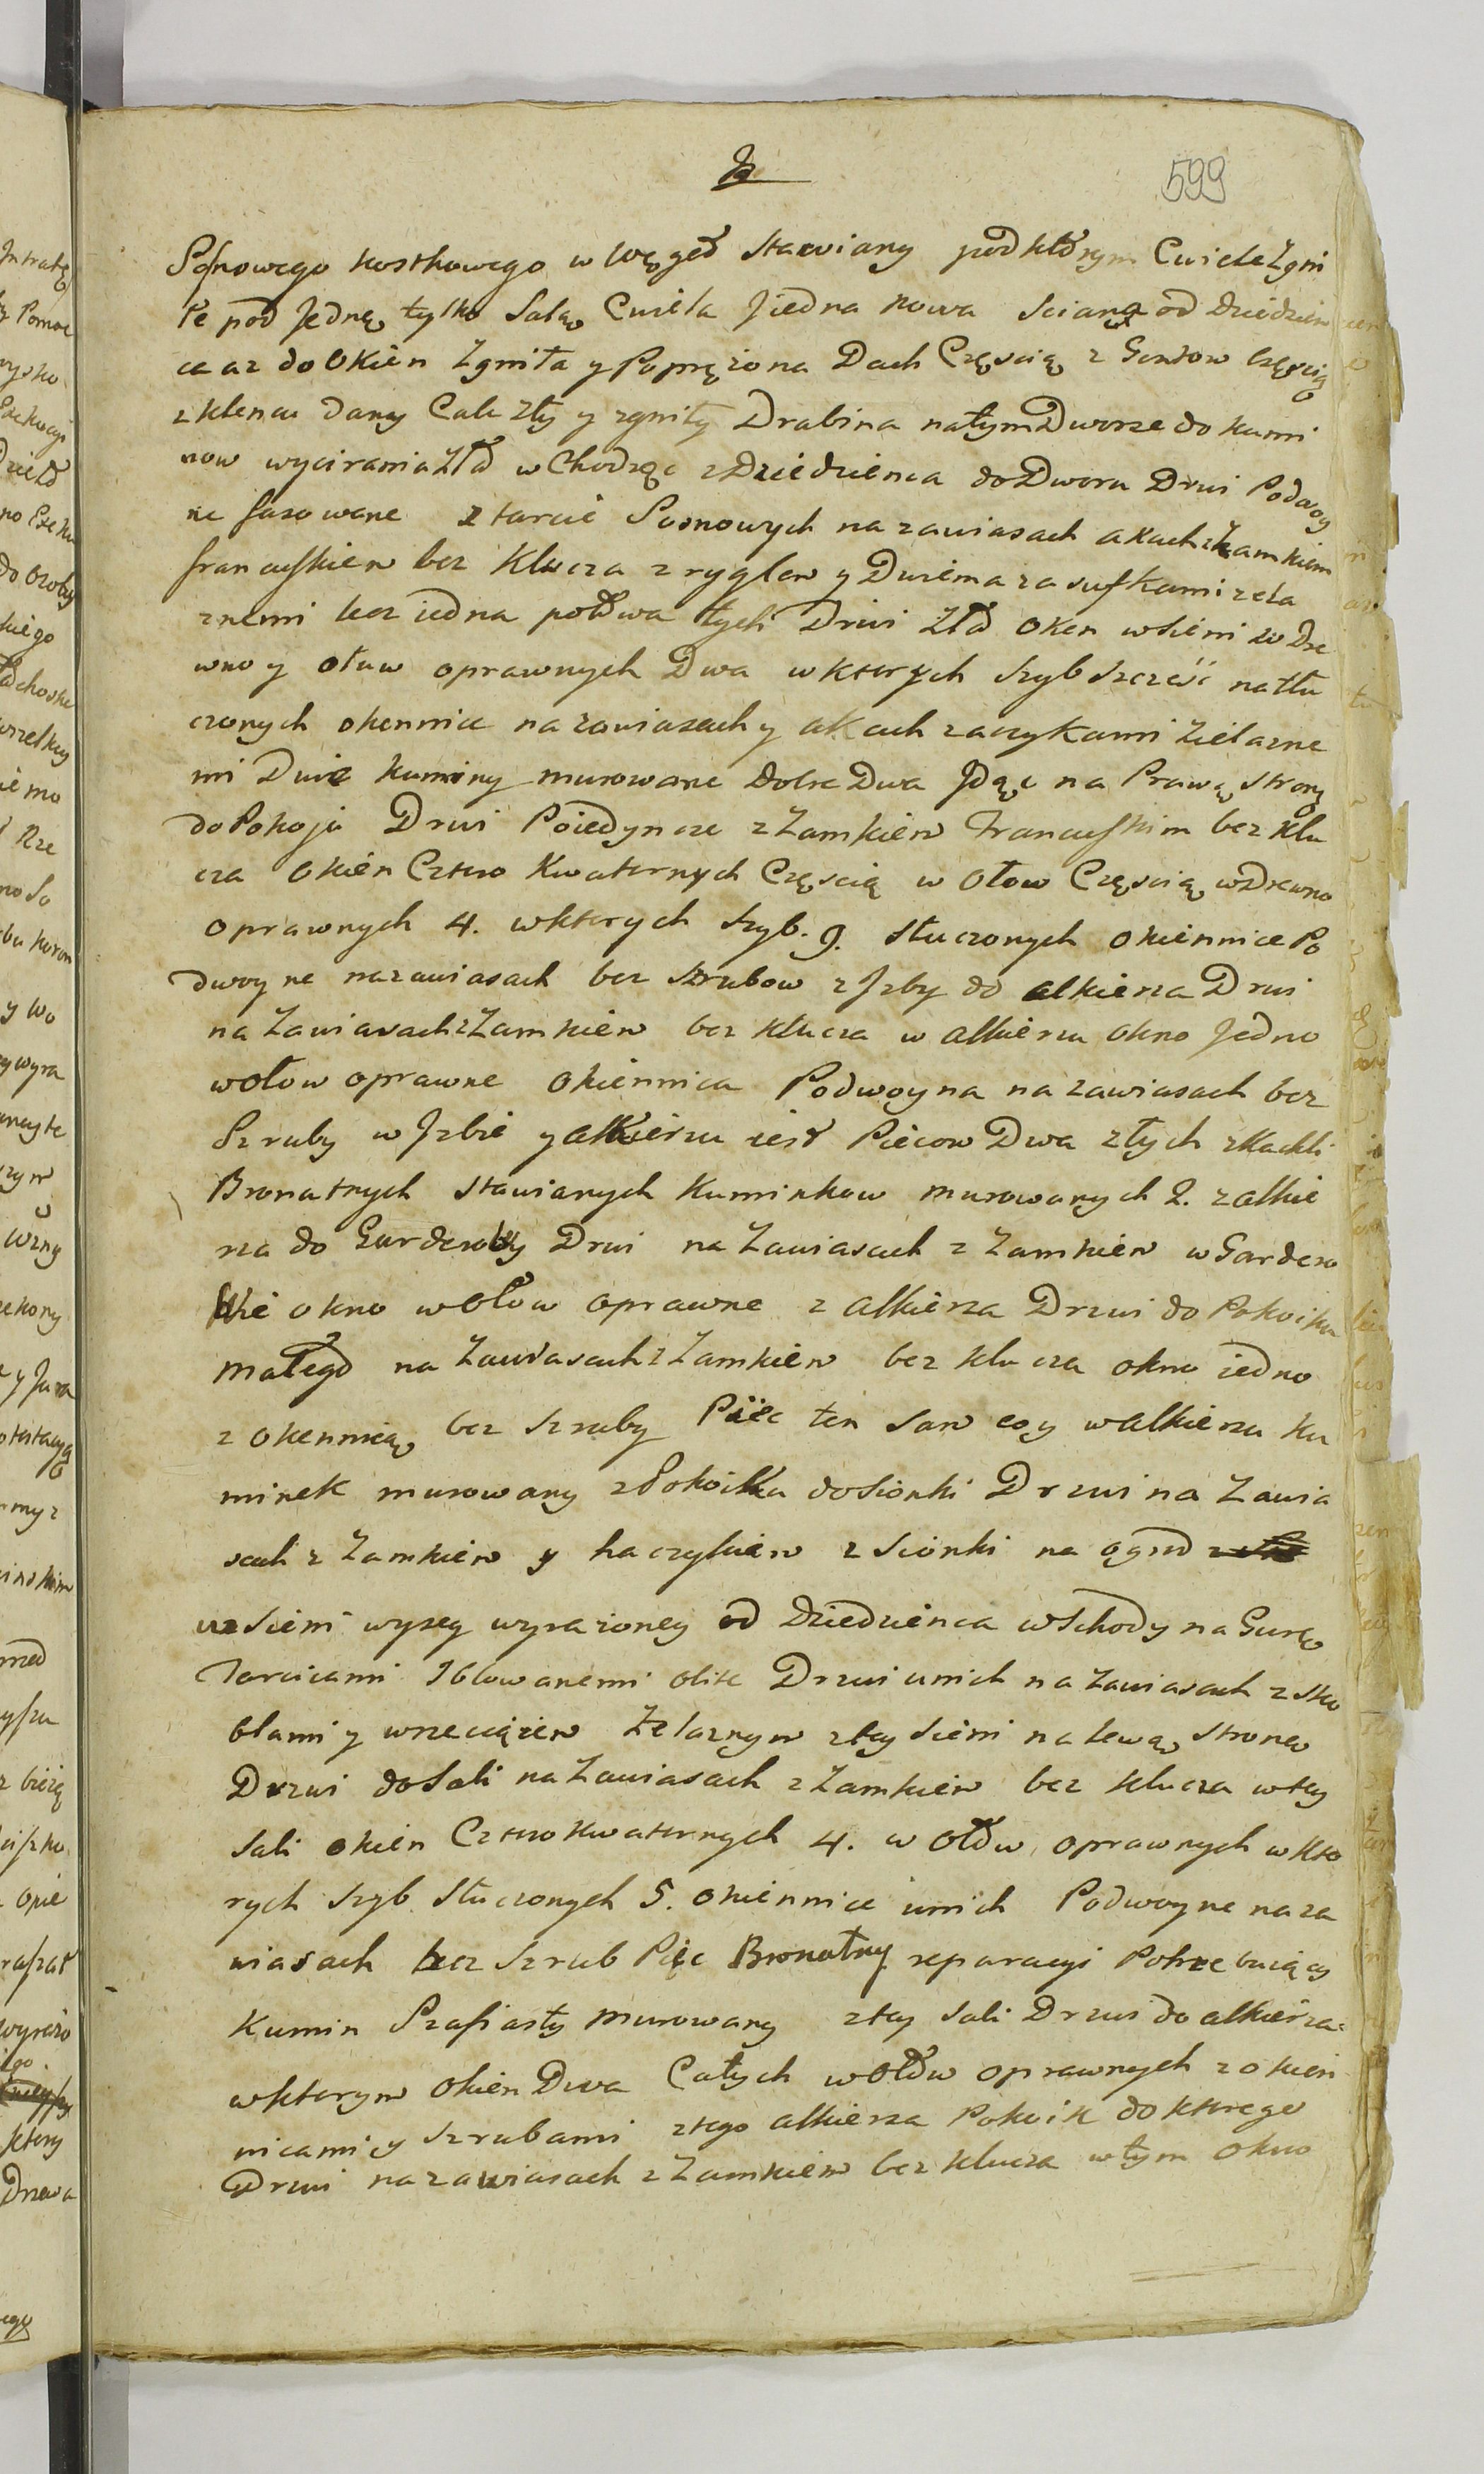 599
Sosnowego kostkowego w Węgeł stawiany pod którym Cwiele zgni
łe pod Jedną tylko Salą Cwiela Jiedna nowa Sciana od dziedzien
ca az do Okien Zgniła y Poprężona Dach Częscią z Gontow częscią
z klenca dany Cale zły y zgniły Drabina na tym Dworze do kumi
now wycirania Zła wChodząc z Dziedzienca do Dworu Drwi Podwoy
ne fasowane z tarcic Sosnowych na zawiasach akach z Zamkiem
francuskiem bez Klucza z ryglem y Dwiema zasufkami zela
znemi lecz iedna połowa tych Drwi Zła oken w Sieni w Drze
wno y ołuw oprawnych Dwa w kturych szyb szcześć natłu
czonych okennice na zawiasach y akach zaczykami żielazne
mi Dwie kuminy murowane dobre Dwa Jdąc na Prawą stronę
do Pokoju Drwi Poiedyncze z Zamkiem Francuskim bez klu
cza Okien Cztero Kwaternych Częscią w Ołow Częscią w Drewno
oprawnych 4. wkturych szyb. 9. stłuczonych okiennice Po
dwoyne na zawiasach bez szrubow z Jzby do alkierza Drwi
na Zawiasach z Zamkiem bez klucza w alkierzu okno Jedno
wołow oprawne Okiennica Podwoyna na zawiasach bez
Szruby w Jzbie y alkierzu iest Piecow Dwa złych z Kachli
Bronatnych stawianych kuminkow murowanych 2. z alkie
rza do Garderoby Drwi na Zawiasach z Zamkiem w Gardero
bie okno wołow oprawne z alkierza Drzwi do Pokoiku
małego na Zawiasach z Zamkiem bez klucza okno iedno
z okennicą bez szruby Piec ten sam coy walkierzu ku
minek murowany z Pokoika do Sionki Drzwi na Zawia
sach z Zamkiem y haczykiem z Sionki na ogrod
uz Sieni wyzey wyrazoney od Dziedzienca wSchody na Gurę
Tarcicami Iblowanemi obite Drzwi unich na zawiasach z sko
blami y wrzeciązem Żelaznym z tey Sieni na lewą stronę
Drzwi do Sali na Zawiasach z Zamkiem bez klucza w tey
Sali okien Cztero Kwaternych 4. w ołów oprawnych w kto
rych szyb stłuczonych 5. okiennice unich Podwoyne na za
wiasach bez szrub Piec Bronatny reparacyi Potrzebuiący
Kumin Szafiasty murowany z tey Sali Drzwi do alkierza
wkturym okien Dwa Całych wołów oprawnych z okien
nicami y szrubami z tego alkierza Pokoik do kturego
Drzwi na zawiasach z Zamkiem bez klucza w tym okno